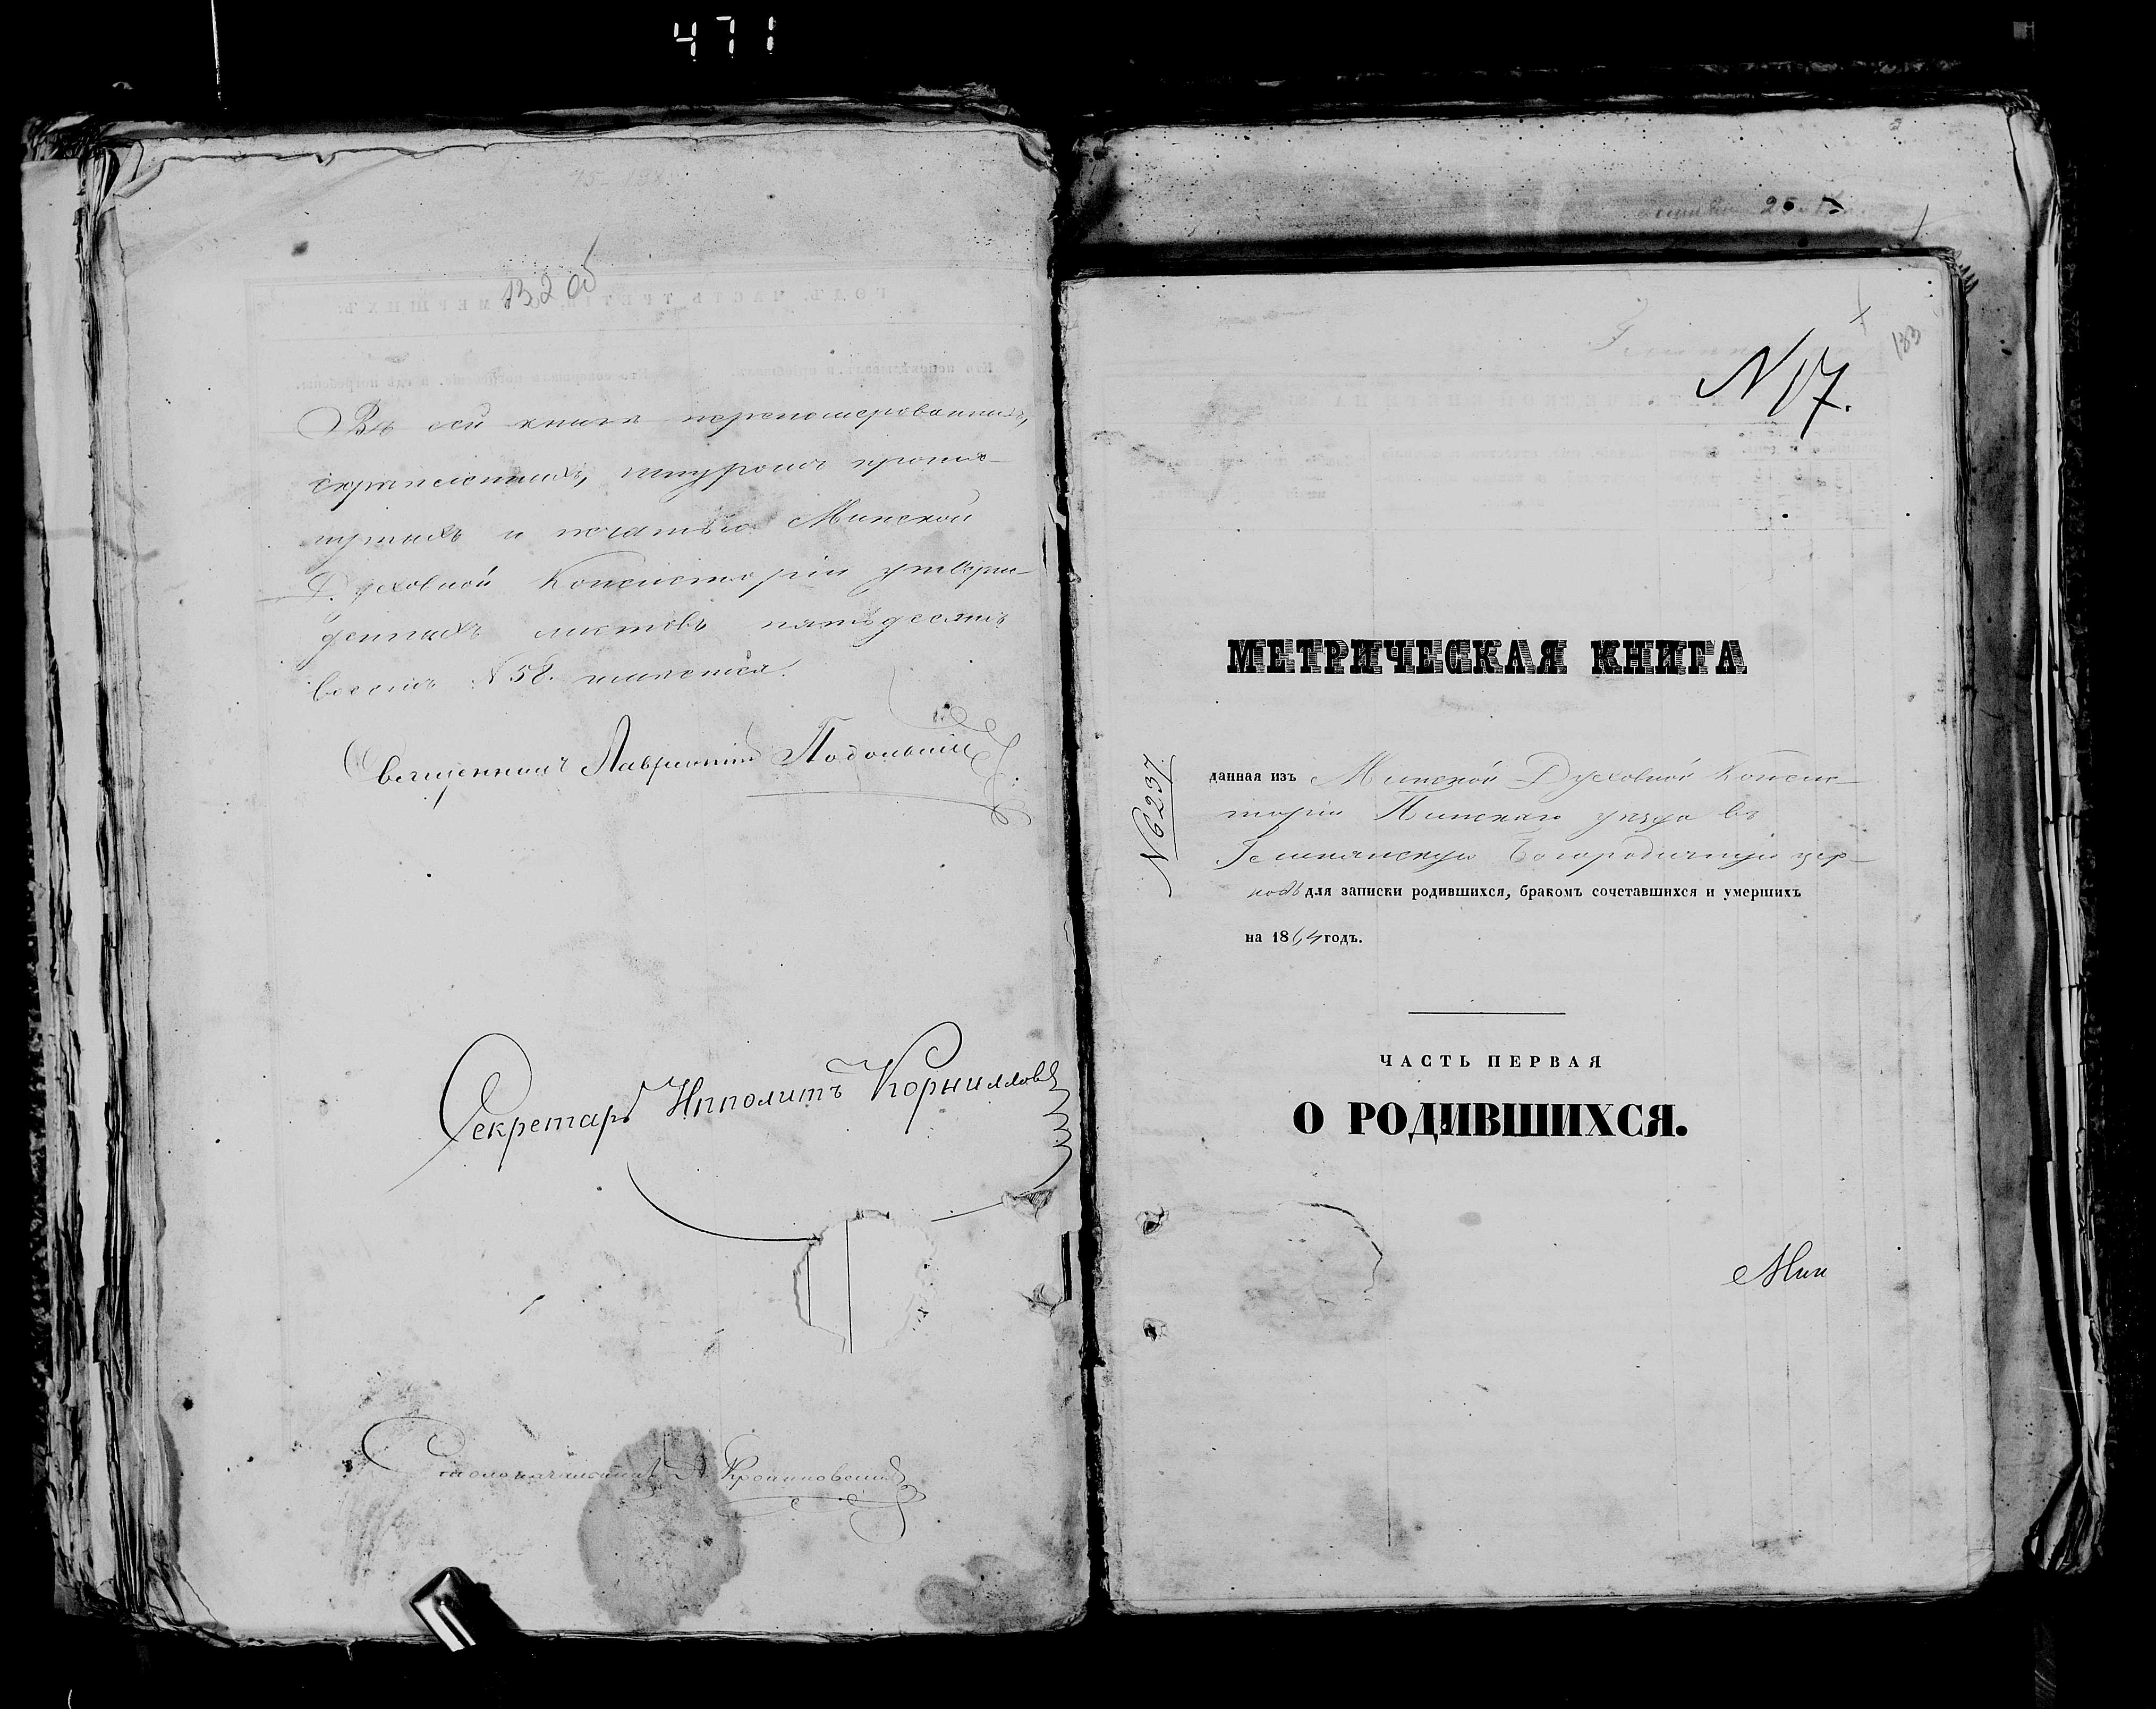 471
132 об
Въ сей книгѣ перенумерованныхъ,
скрепленныхъ, шнуромъ прошну-
тыхъ и печатью Минской
Духовной Консисторіи утверж-
денныхъ листовъ пятьдесятъ
восемь № 58. имѣется.
Священникъ Лаврентій Подольскій
Секретарь Ипполитъ Корниловъ
Столоначальникъ
133
N 17.
МЕТРИЧЕСКАЯ КНИГА
N 6237.
данная изъ Минской Духовной Консис-
торіи Пинскаго уѣзда въ
Богородичную цер-
ковь для записки родившихся, бракомъ сочетавшихся и умершихъ
на 1864 годъ.
ЧАСТЬ ПЕРВАЯ
О РОДИВШИХСЯ.
Мин